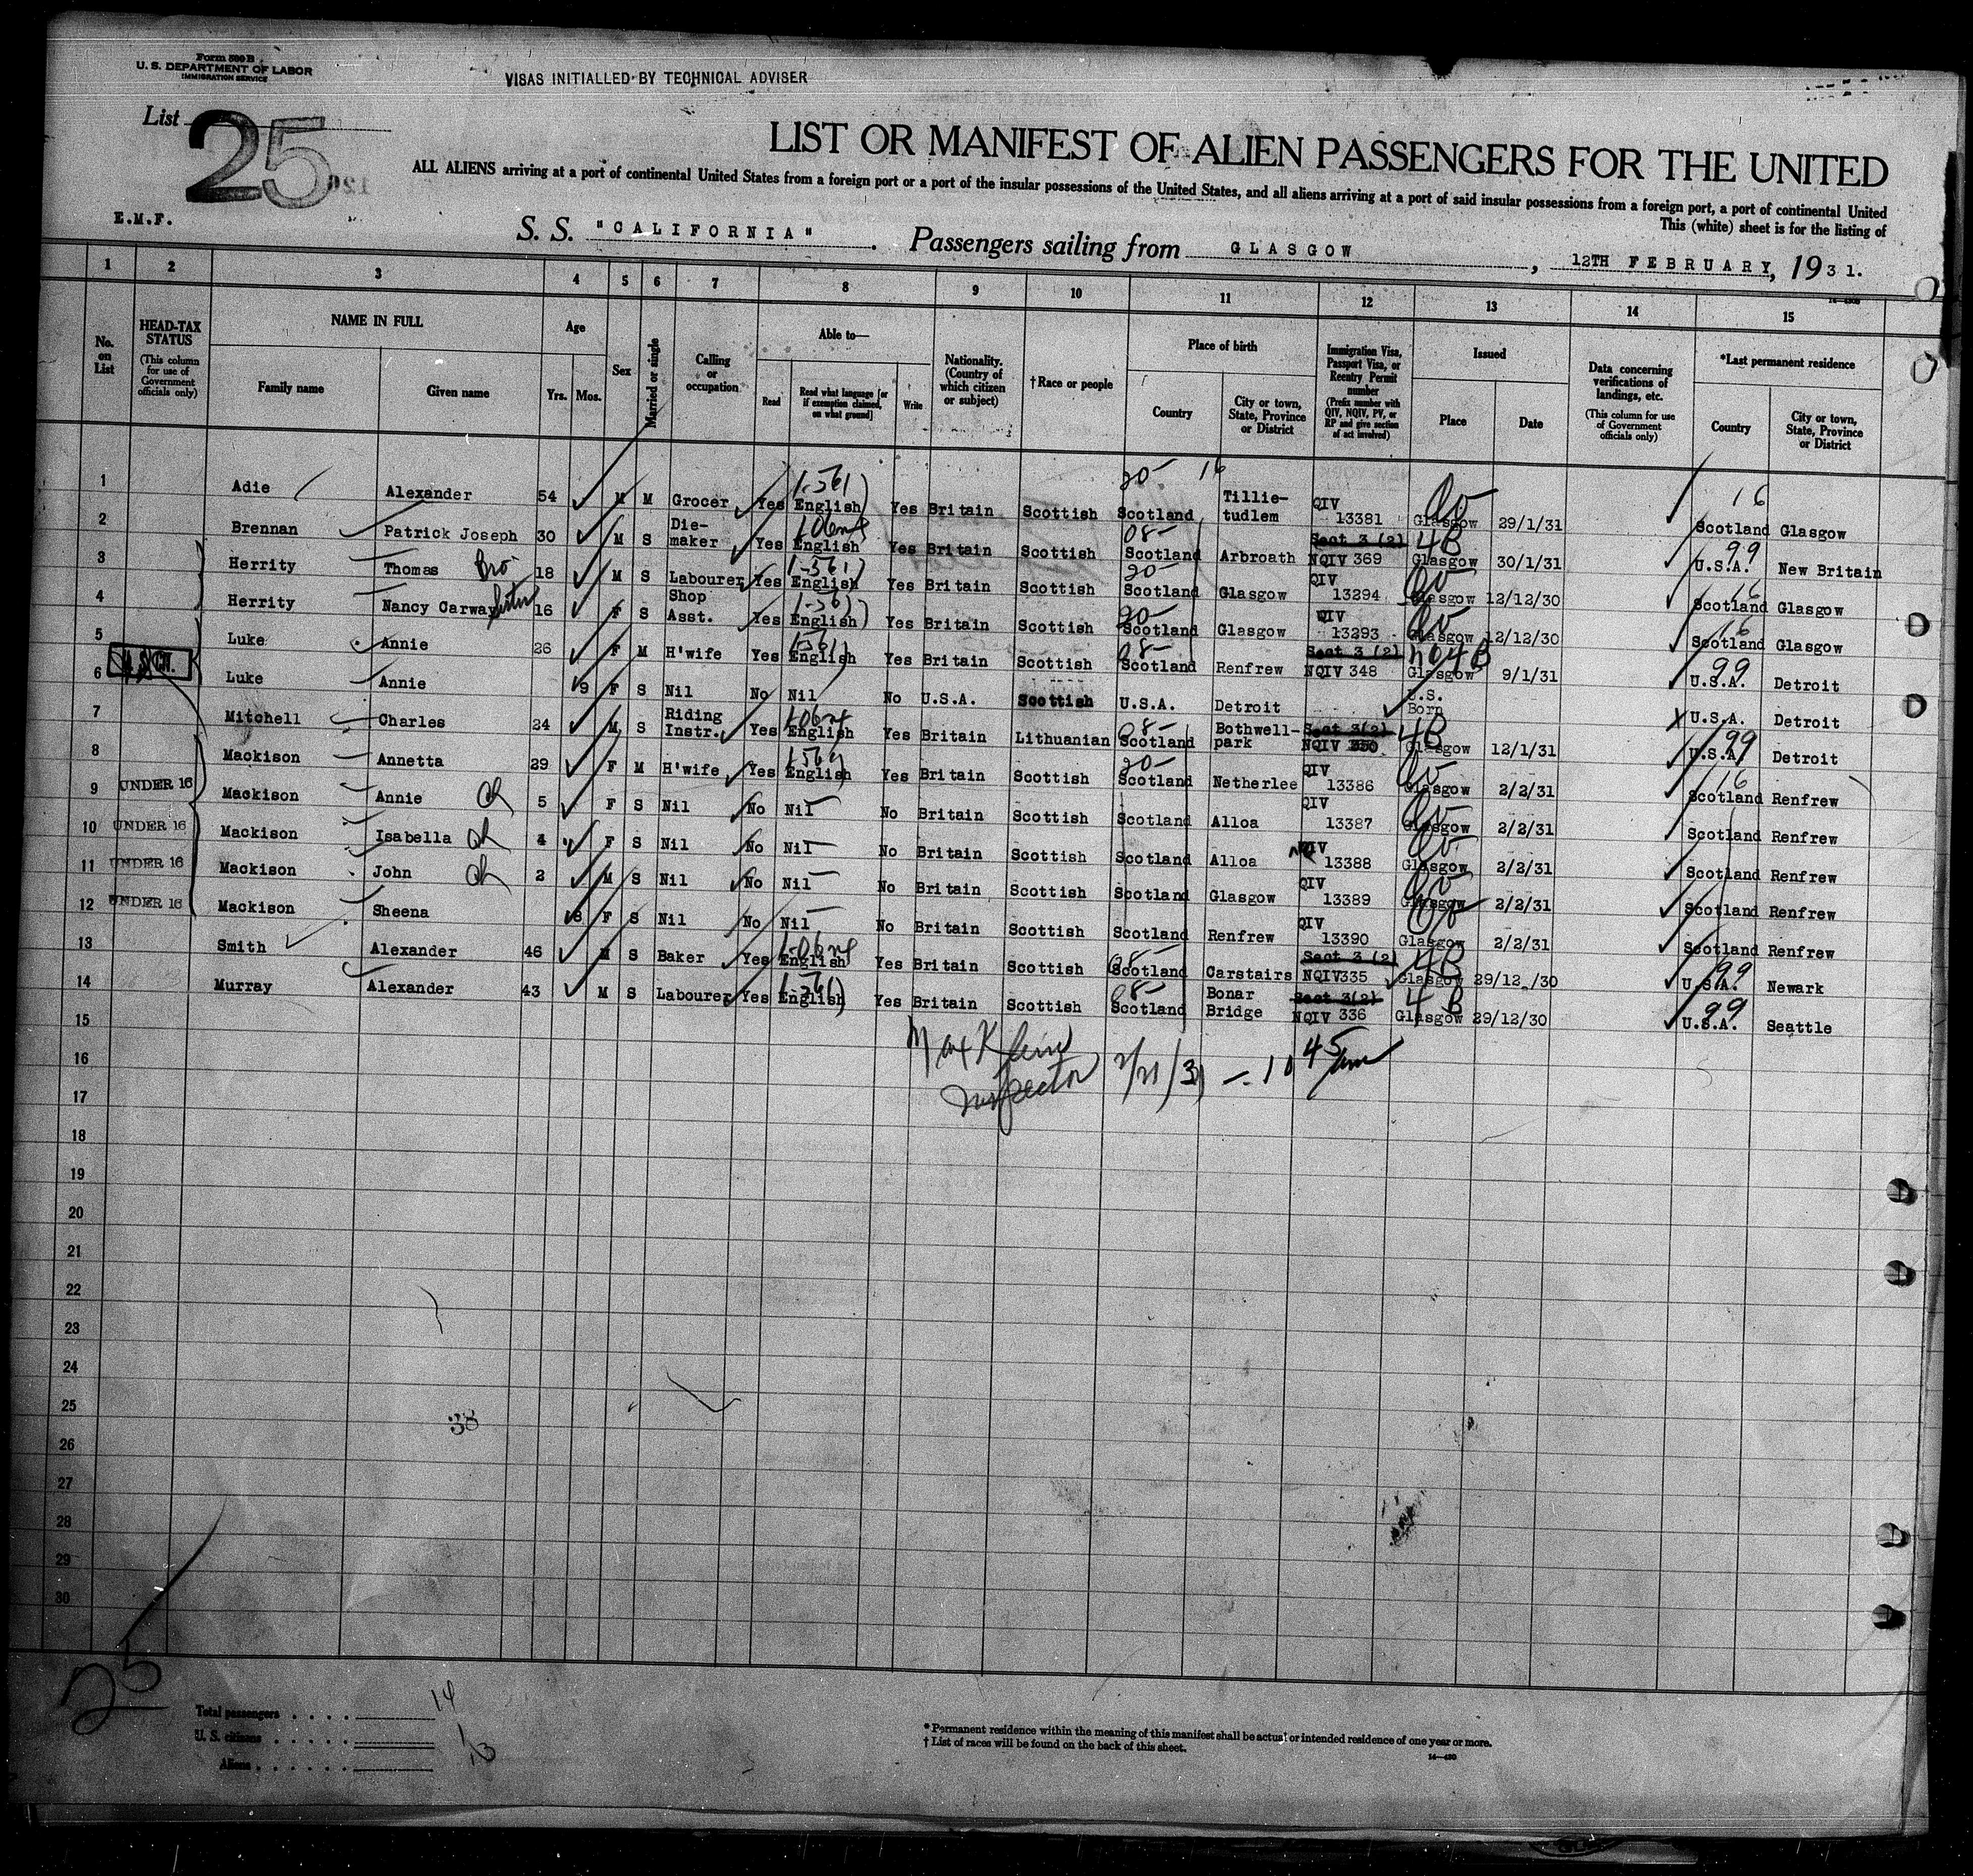 Form 500 B
U. S. DEPARTMENT OF LABOR
IMMIGRATION SERVICE
VISAS INITIALLED BY TECHNICAL ADVISER
List 25
LIST OR MANIFEST OF ALIEN PASSENGERS FOR THE UNITED
ALL ALIENS arriving at a port of continental United States from a foreign port or a port of the insular possessions of the United States, and all aliens arriving at a port of said insular possessions from a foreign port, a port of continental United
This (white) sheet is for the listing of
E.M.F.
S. S. "CALIFORNIA" . Passengers sailing from GLASGOW , 12TH FEBRUARY, 1931.
1 2 3 4 5 6 7 8 9 10 11 12 13 14 15
No. on List
HEAD-TAX STATUS
(This column for use of Government officials only)
NAME IN FULL
Family name
Given name
Age
Yrs.
Mos.
Sex
Married or single
Calling or occupation
Able to—
Read
Read what language [or if exemption claimed, on what ground]
Write
Nationality. (Country of which citizen or subject)
† Race or people
Place of birth
Country
City or town, State, Province or District
Immigration Visa, Passport Visa, or Reentry Permit number
(Prefix number with QIV, NQIV, PV, or RP and give section of act involved)
Issued
Place
Date
Data concerning verifications of landings, etc.
(This column for use of Government officials only)
*Last permanent residence
Country
City or town, State, Province or District
20- 16
1 Adie Alexander 54 M M Grocer Yes English Yes Britain Scottish Scotland Tillie-tudlem QIV 13381 Glasgow 29/1/31 16 Scotland Glasgow
2 Brennan Patrick Joseph 30 M S Die-maker Yes English Yes Britain Scottish 08- Scotland Arbroath Sect 3 (2) NQIV 369 4B Glasgow 30/1/31 99 U.S.A. New Britain
3 Herrity Thomas Bro 18 M S Labourer Yes English Yes Britain Scottish 20- Scotland Glasgow QIV 13294 Glasgow 12/12/30 16 Scotland Glasgow
4 Herrity Nancy Carway Sister 16 F S Shop Asst. Yes English Yes Britain Scottish 20- Scotland Glasgow QIV 13293 Glasgow 12/12/30 16 Scotland Glasgow
5 Luke Annie 26 F M H'wife Yes English Yes Britain Scottish 08- Scotland Renfrew Sect 3 (2) NQIV 348 4B Glasgow 9/1/31 99 U.S.A. Detroit
6 Luke Annie 9 F S Nil No Nil No U.S.A. Scottish U.S.A. Detroit U.S. Born U.S.A. Detroit
7 Mitchell Charles 24 M S Riding Instr. Yes English Yes Britain Lithuanian 08- Scotland Bothwell-park Sect 3(2) NQIV 350 4B Glasgow 12/1/31 99 U.S.A. Detroit
8 Mackison Annetta 29 F M H'wife Yes English Yes Britain Scottish 20- Scotland Netherlee QIV 13386 Glasgow 2/2/31 16 Scotland Renfrew
9 UNDER 16 Mackison Annie Ch 5 F S Nil No Nil No Britain Scottish Scotland Alloa QIV 13387 Glasgow 2/2/31 Scotland Renfrew
10 UNDER 16 Mackison Isabella Ch 4 F S Nil No Nil No Britain Scottish Scotland Alloa QIV 13388 Glasgow 2/2/31 Scotland Renfrew
11 UNDER 16 Mackison John Ch 2 M S Nil No Nil No Britain Scottish Scotland Glasgow QIV 13389 Glasgow 2/2/31 Scotland Renfrew
12 UNDER 16 Mackison Sheena 8 F S Nil No Nil No Britain Scottish Scotland Renfrew QIV 13390 Glasgow 2/2/31 Scotland Renfrew
13 Smith Alexander 46 M S Baker Yes English Yes Britain Scottish 08- Scotland Carstairs Sect 3 (2) NQIV335 4B Glasgow 29/12/30 99 U.S.A. Newark
14 Murray Alexander 43 M S Labourer Yes English Yes Britain Scottish 08- Scotland Bonar Bridge Sect 3(2) NQIV 336 4B Glasgow 29/12/30 99 U.S.A. Seattle
15
Max Klein
16
Inspector 2/21/31 - 10 45 am
17
18
19
20
21
22
23
24
25
38
26
27
28
29
30
25
Total passengers . . . . 14
U. S. citizens . . . . . 1
Aliens . . . . . . 13
* Permanent residence within the meaning of this manifest shall be actual or intended residence of one year or more.
† List of races will be found on the back of this sheet.
14—430